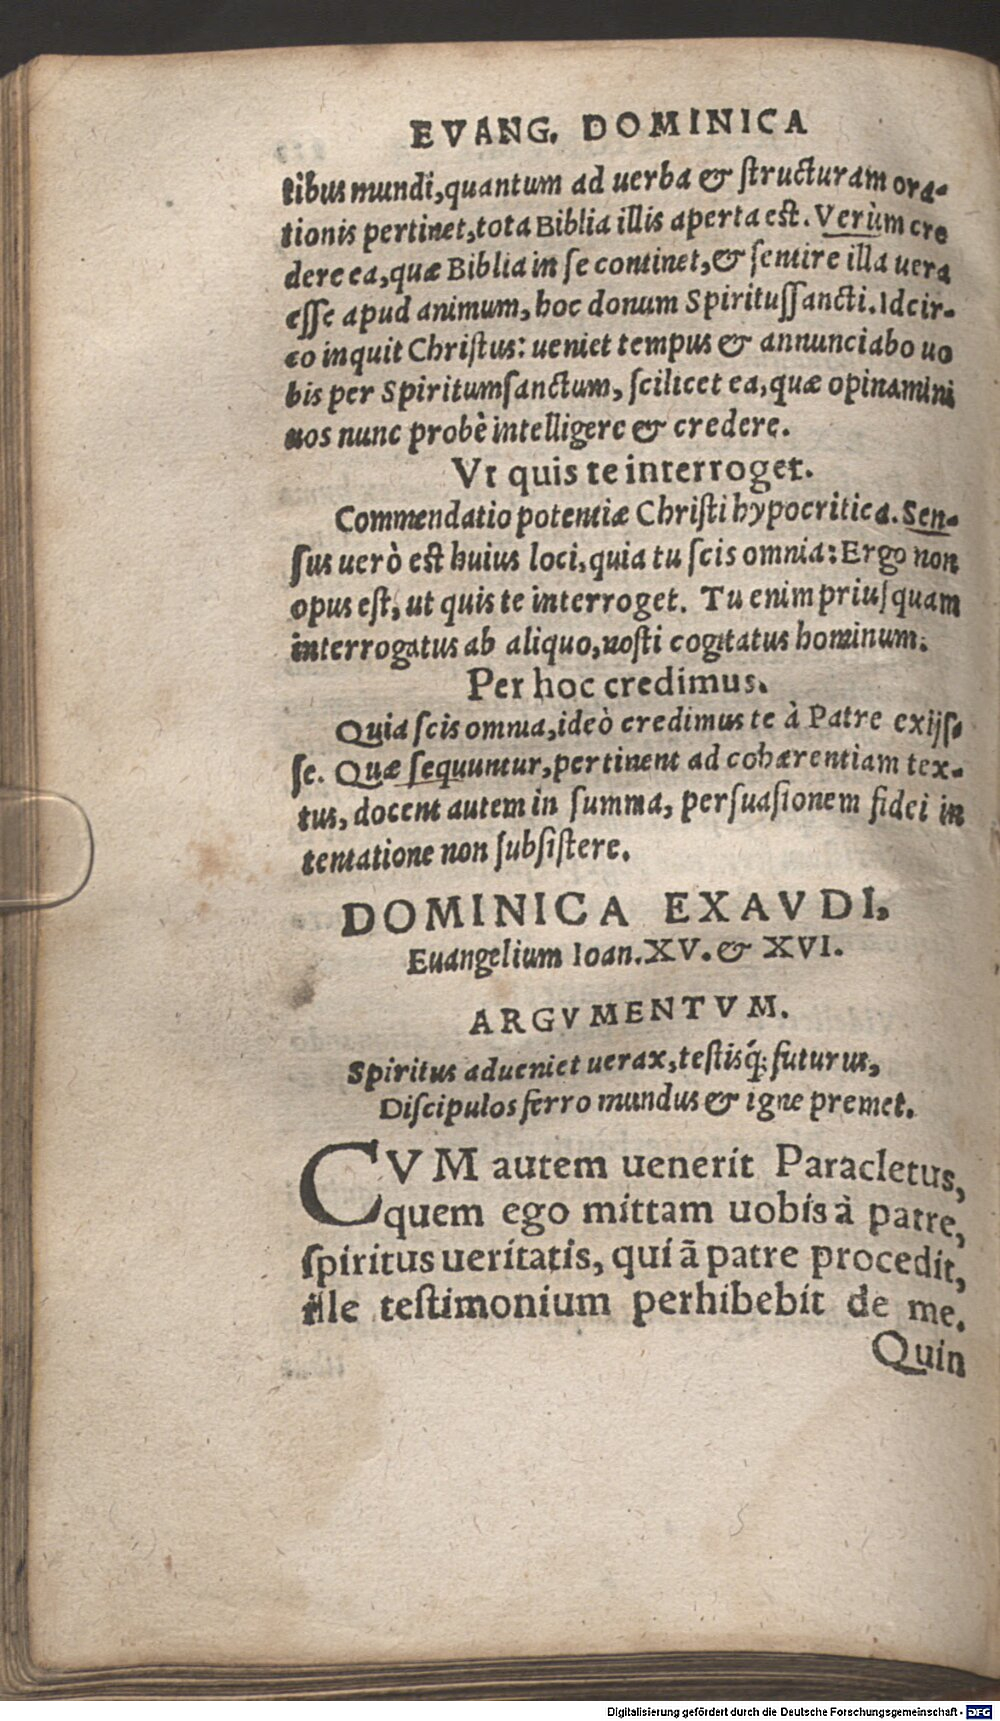 EVANG. DOMINICA
tibus mundi, quantum ad uerba & structuram ora-
tionis pertinet, tota Biblia illis aperta est. Verùm cre
dere ea, quæ Biblia in se continet, & sentire illa uera
esse apud animum, hoc donum Spiritussancti. Idcir-
co inquit Christus: ueniet tempus & annunciabo uo
bis per Spiritumsanctum, scilicet ea, quæ opinamini
uos nunc probè intelligere & credere.
Vt quis te interroget.
Commendatio potentiæ Christi hypocritica. Sen-
sus uerò est huius loci, quia tu scis omnia: Ergo non
opus est, ut quis te interroget. Tu enim priusquam
interrogatus ab aliquo, nosti cogitatus hominum.
Per hoc credimus.
Quia scis omnia, ideò credimus te à Patre exijs-
se. Quæ sequuntur, pertinent ad cohærentiam tex-
tus, docent autem in summa, persuasionem fidei in
tentatione non subsistere.
DOMINICA EXAVDI,
Euangelium Ioan. XV. & XVI.
ARGVMENTVM.
Spiritus adueniet uerax, testisq́; futurus,
Discipulos ferro mundus & igne premet.
CVM autem uenerit Paracletus,
quem ego mittam uobis à patre,
spiritus ueritatis, qui ā patre procedit,
ille testimonium perhibebit de me.
Quin
Digitalisierung gefördert durch die Deutsche Forschungsgemeinschaft - DFG